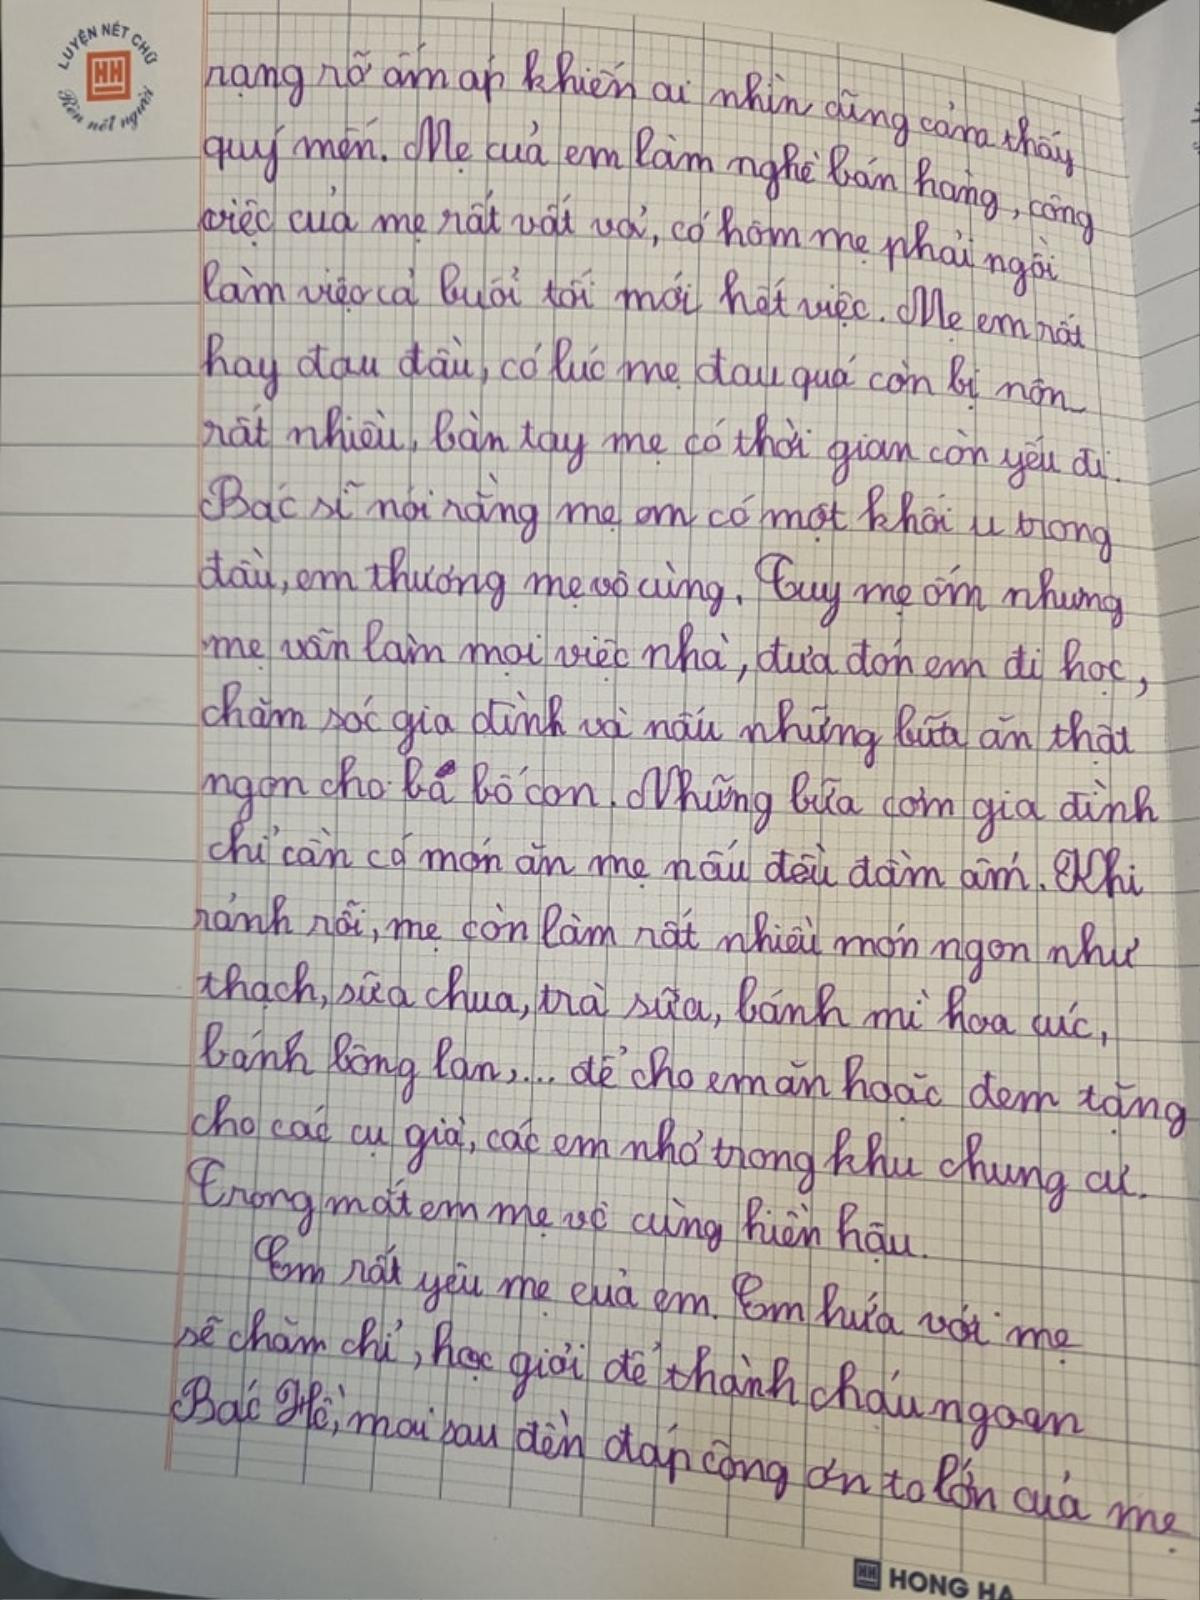 LUYỆN NÉT CHỮ
HH
Rèn nết người
rạng rỡ ấm áp khiến ai nhìn cũng cảm thấy
quý mến. Mẹ của em làm nghề bán hàng, công
việc của mẹ rất vất vả, có hôm mẹ phải ngồi
làm việc cả buổi tối mới hết việc. Mẹ em rất
hay đau đầu, có lúc mẹ đau quá còn bị nôn
rất nhiều, bàn tay mẹ có thời gian còn yếu đi.
Bác sĩ nói rằng mẹ em có một khối u trong
đầu, em thương mẹ vô cùng. Tuy mẹ ốm nhưng
mẹ vẫn làm mọi việc nhà, đưa đón em đi học,
chăm sóc gia đình và nấu những bữa ăn thật
ngon cho ba bố con. Những bữa cơm gia đình
chỉ cần có món ăn mẹ nấu đều đầm ấm. Khi
rảnh rỗi, mẹ còn làm rất nhiều món ngon như
thạch, sữa chua, trà sữa, bánh mì hoa cúc,
bánh bông lan,... để cho em ăn hoặc đem tặng
cho các cụ già, các em nhỏ trong khu chung cư.
Trong mắt em mẹ vô cùng hiền hậu.
Em rất yêu mẹ của em. Em hứa với mẹ
sẽ chăm chỉ, học giỏi để thành cháu ngoan
Bác Hồ, mai sau đền đáp công ơn to lớn của mẹ.
HH HONG HA